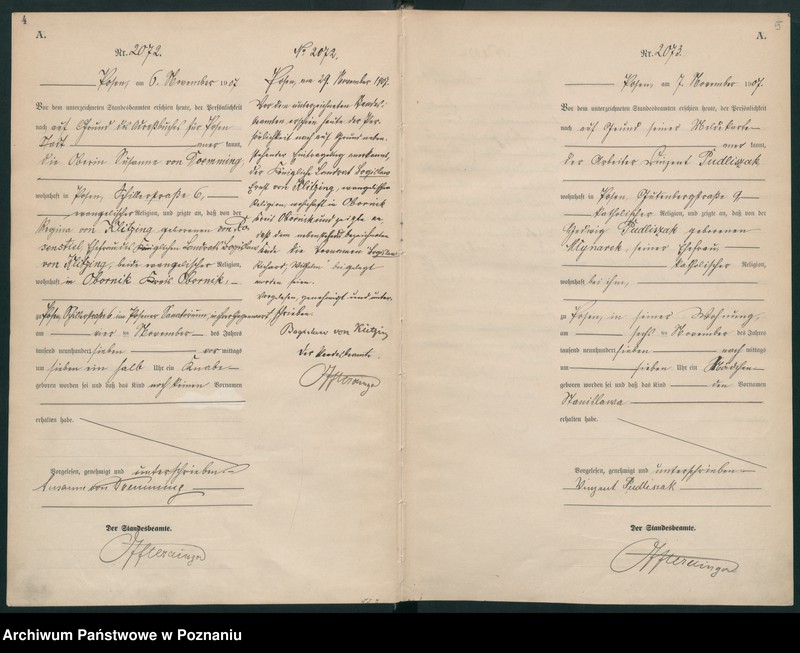 4
A.
Nr. 2072.
Posen, am 6. November 1907
Vor dem unterzeichneten Standesbeamten erschien heute, der Persönlichkeit
nach auf Grund des Adreßbuches für Posen
Stadt kannt,
die Oberin Susanne von Doemming,
wohnhaft in Posen, Schillerstraße 6,
evangelischer Religion, und zeigte an, daß von der
Regina von Klitzing geborenen von
Ehefrau des Königlichen Landrats Bogislav
von Klitzing, beide evangelischer Religion,
wohnhaft in Obornik Kreis Obornik,
zu Posen Schillerstraße 6 im Posener Sanatorium, in ihrer Gegenwart
am vier ten November des Jahres
tausend neunhundert sieben vor mittags
um sieben ein halb Uhr ein Knabe
geboren worden sei und daß das Kind noch keinen Vornamen
erhalten habe.
Vorgelesen, genehmigt und unterschrieben
Susanne von Doemming
Der Standesbeamte.
No 2072.
Posen, am 29. November 1907.
Vor dem unterzeichneten Standes-
beamten erschien heute der Per-
sönlichkeit nach auf Grund neben-
stehender Eintragung anerkannt,
der Königliche Landrat Bogislav
von Klitzing, evangelischer
Religion, wohnhaft in Obornik
Kreis Obornik und zeigte an
daß dem nebenstehend bezeichneten
Kinde die Vornamen Bogislav
Richard, Wilhelm beigelegt
worden seien.
Vorgelesen, genehmigt und unter-
schrieben.
Bogislav von Klitzing
Der Standesbeamte.
5
A.
Nr. 2073.
Posen, am 7. November 1907.
Vor dem unterzeichneten Standesbeamten erschien heute, der Persönlichkeit
nach auf Grund seiner Meldekarte
kannt,
der Arbeiter Vinzent Pudliszak
wohnhaft in Posen, Gutenbergstraße 9
katholischer Religion, und zeigte an, daß von der
Hedwig Pudliszak geborenen
Mlynarek, seiner Ehefrau
katholischer Religion,
wohnhaft bei ihm,
zu Posen, in seiner Wohnung,
am sechs ten November des Jahres
tausend neunhundert sieben nach mittags
um sieben Uhr ein Mädchen
geboren worden sei und daß das Kind den Vornamen
Stanislawa
erhalten habe.
Vorgelesen, genehmigt und unterschrieben
Vinzent Pudliszak
Der Standesbeamte.
Archiwum Państwowe w Poznaniu